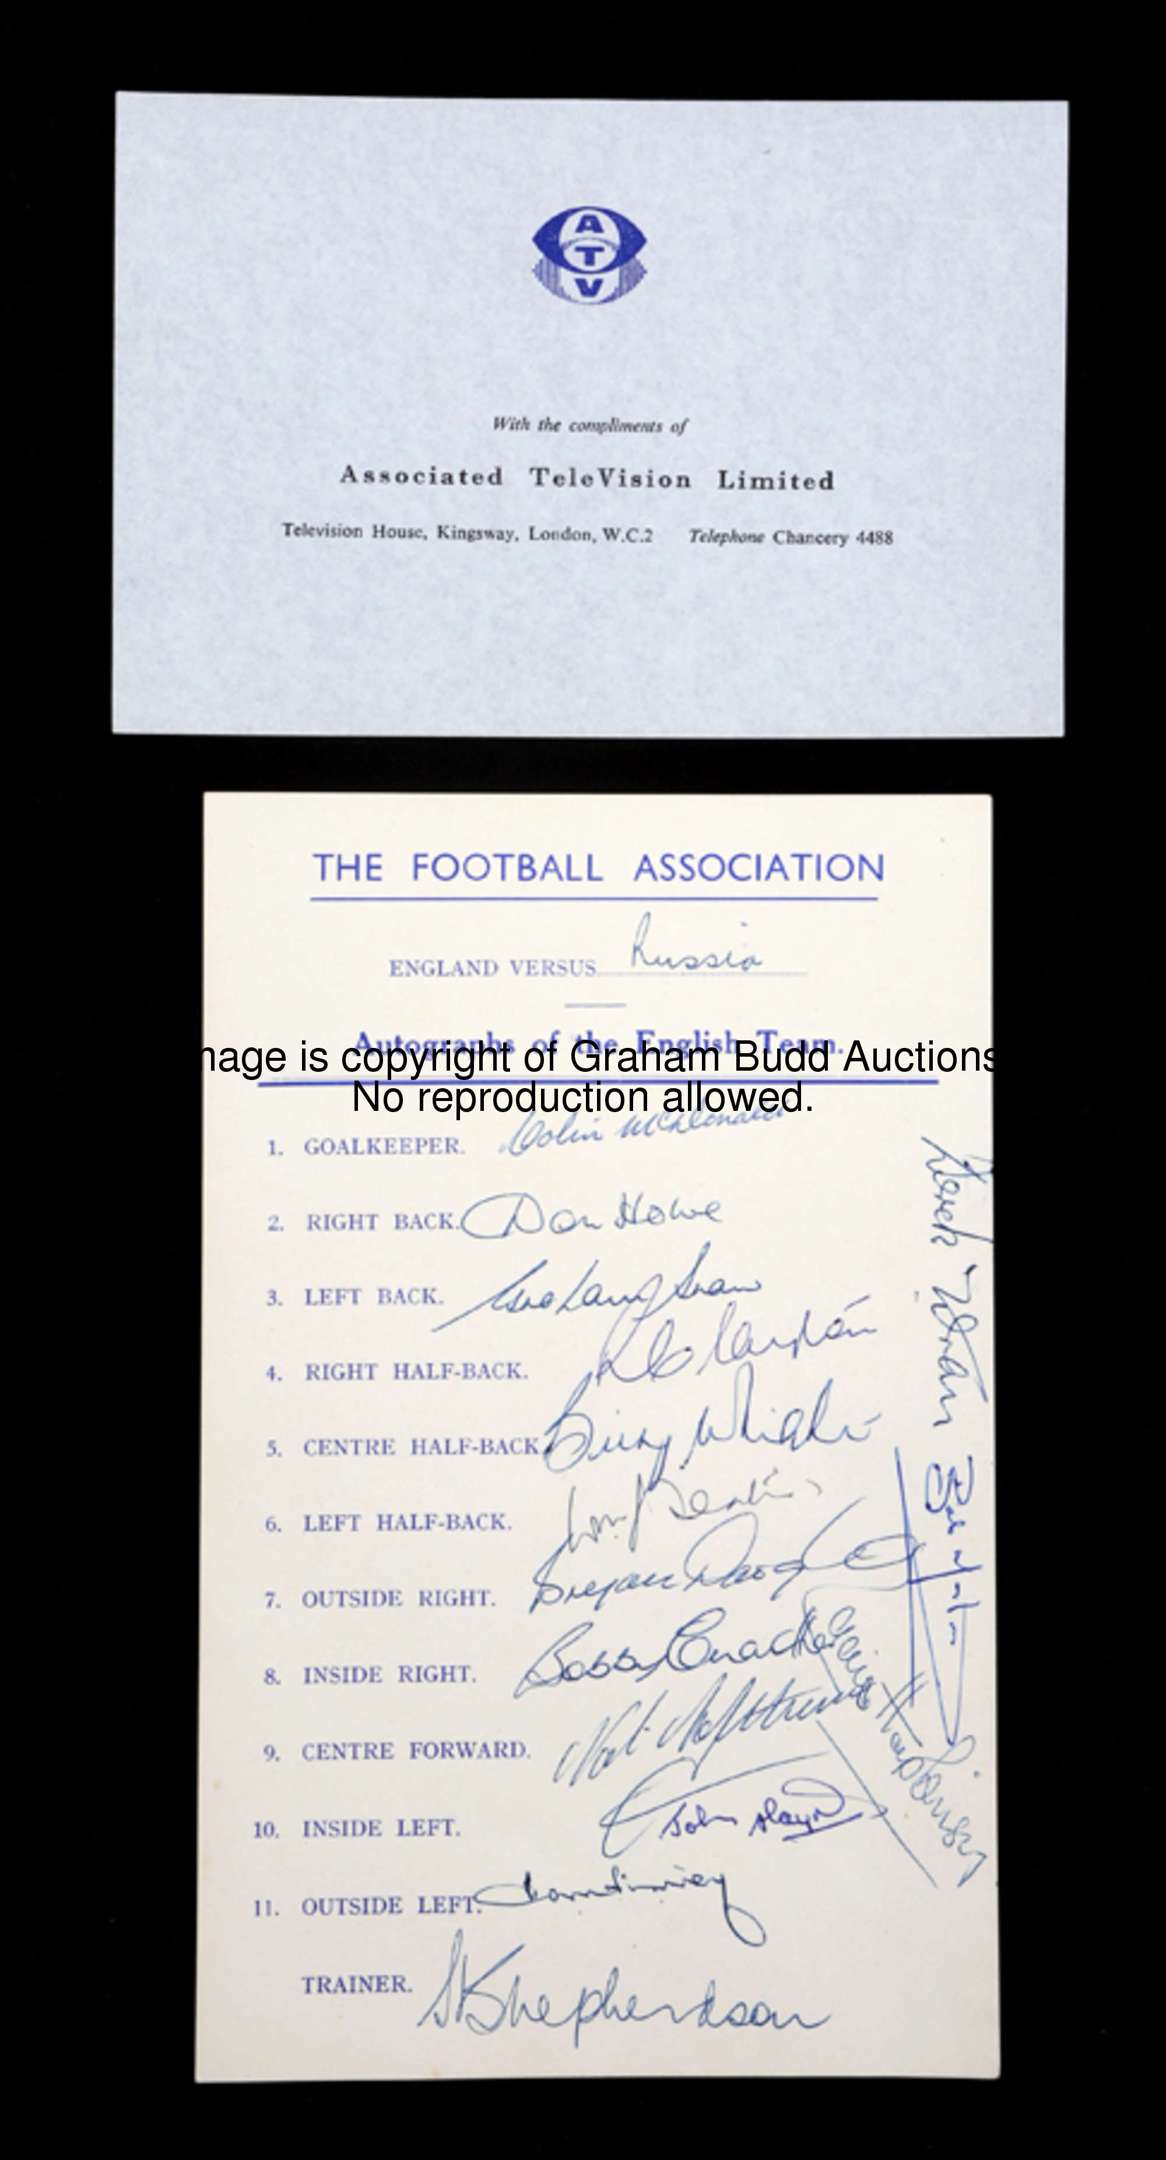 A
T
V
With the compliments of
Associated TeleVision Limited
Television House, Kingsway, London, W.C.2 Telephone Chancery 4488
THE FOOTBALL ASSOCIATION
ENGLAND VERSUS Russia
Autographs of the English Team.
nage is copyright of Graham Budd Auctions
No reproduction allowed.
1. GOALKEEPER. Colin McDonald
2. RIGHT BACK. Don Howe
3. LEFT BACK.
4. RIGHT HALF-BACK. R Clayton
5. CENTRE HALF-BACK Billy Wright
6. LEFT HALF-BACK.
7. OUTSIDE RIGHT. Bryan Douglas
8. INSIDE RIGHT. Bobby
9. CENTRE FORWARD. Nat Lofthouse
10. INSIDE LEFT. John
11. OUTSIDE LEFT. Tom Finney
TRAINER. Shepherdson
Derek